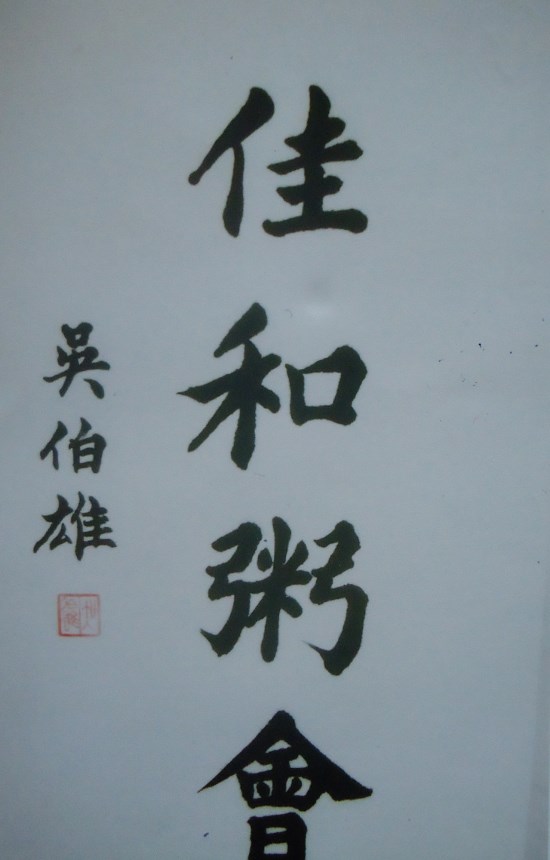 佳和粥會
吳伯雄